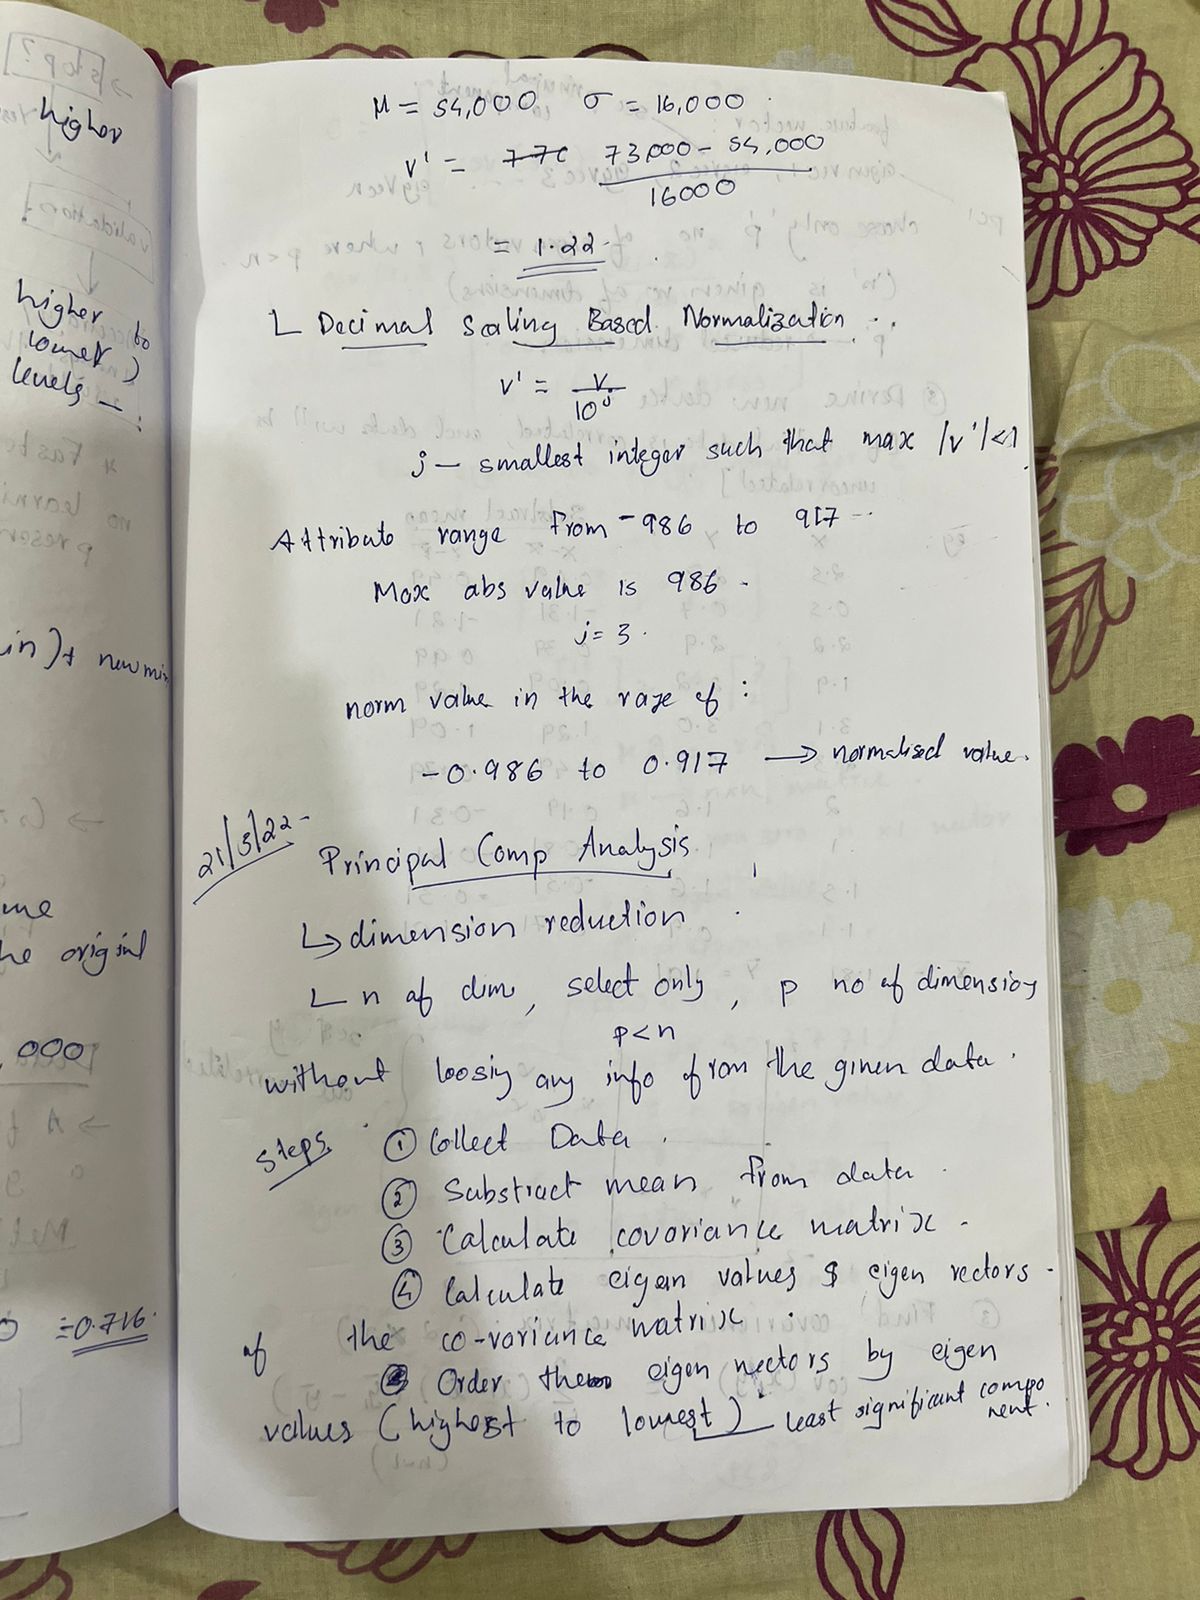 higher
higher to
lower)
levels -
in)+ newmin
me
he original
000
=0.716.
M = 54,000 σ = 16,000
v' = 73,000 - 54,000
16000
= 1.22
Decimal Scaling Based Normalization
v' = v
10^j
j - smallest integer such that max |v'|<1
Attribute range from -986 to 917
Max abs value is 986
j = 3
norm value in the rage of :
-0.986 to 0.917 → normalised value.
21/3/22 -
Principal Comp Analysis
↳ dimension reduction
n of dim, select only, p no of dimension
p<n
without loosing any info from the given data.
Steps
① Collect Data.
② Substract mean from data
③ Calculate covariance matrix -
④ Calculate eigen values & eigen vectors -
of the co-variance matrix
Order the eigen vectors by eigen
values (highest to lowest) least significant compo
nent.